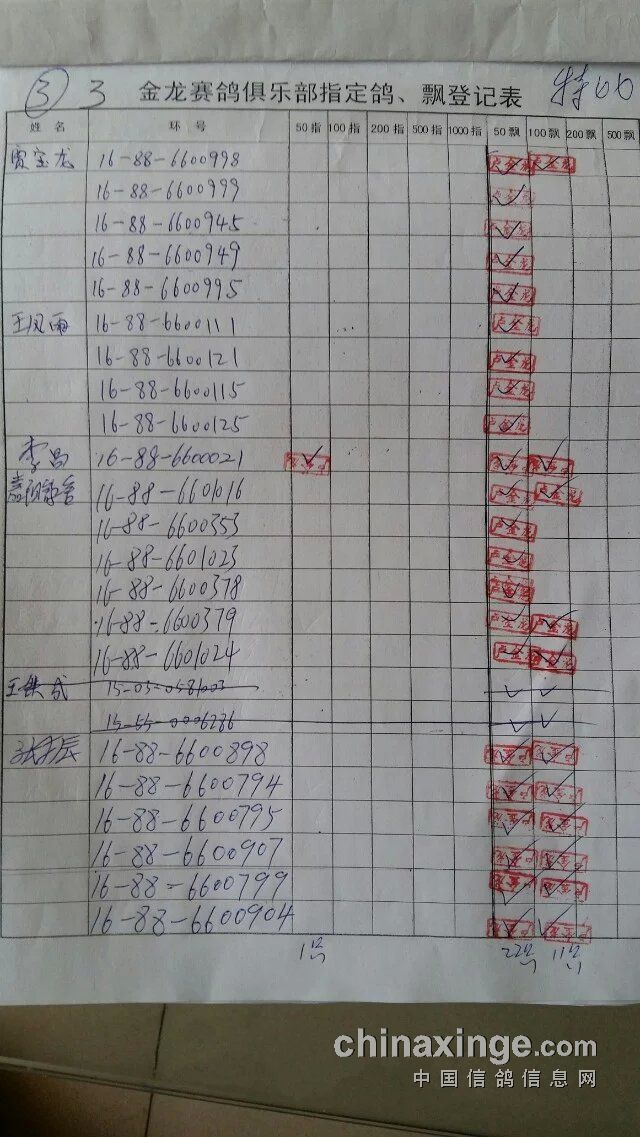 ③ 3 金龙赛鸽俱乐部指定鸽、飘登记表 特
姓名 环号 50指 100指 200指 500指 1000指 50飘 100飘 200飘 500飘
贾宝龙 16-88-6600998
16-88-6600999
16-88-6600945
16-88-6600949
16-88-6600995
王风雨 16-88-6600111
16-88-6600121
16-88-6600115
16-88-6600125
李昌 16-88-6600021
16-88-6601016
16-88-6600353
16-88-6601023
16-88-6600378
16-88-6600379
16-88-6601024
王铁成 15-05-0581003
15-55-0006286
16-88-6600898
16-88-6600794
16-88-6600795
16-88-6600907
16-88-6600799
16-88-6600904
chinaxinge.com
中国信鸽信息网